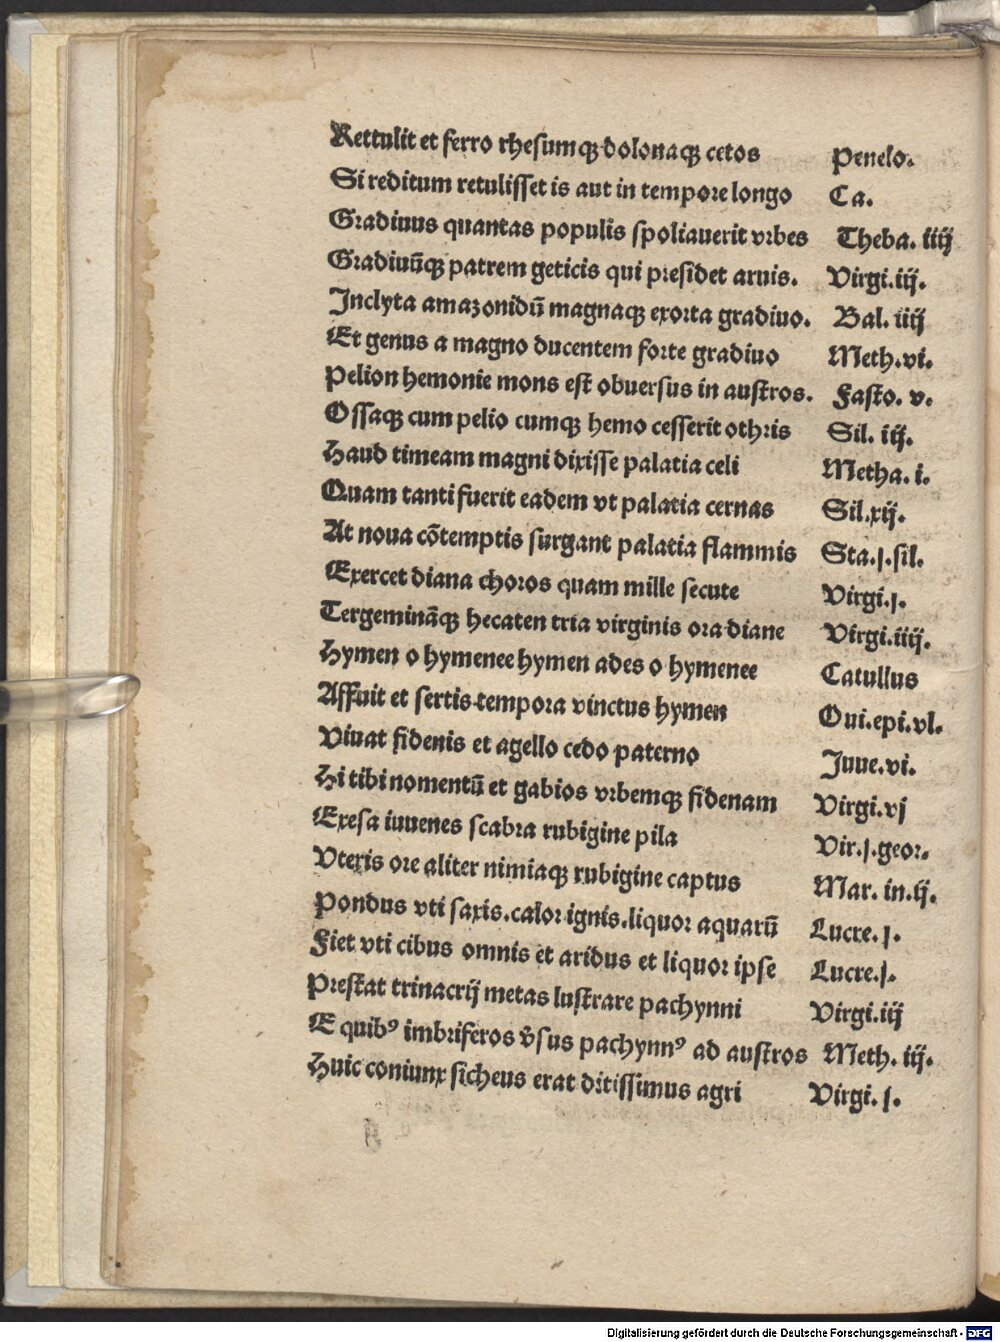 Rettulit et ferro rhesumqꝫ dolonaqꝫ cetos Penelo.
Si reditum retulisset is aut in tempore longo Ca.
Gradiuus quantas populis spoliauerit vrbes Theba. iiij
Gradiuūqꝫ patrem geticis qui presidet aruis. Virgi.iij.
Inclyta amazonidū magnaqꝫ exorta gradiuo. Bal. iiij
Et genus a magno ducentem forte gradiuo Meth.vi.
Pelion hemonie mons est obuersus in austros. Fasto. v.
Ossaqꝫ cum pelio cumqꝫ hemo cesserit othris Sil. iij.
Haud timeam magni dixisse palatia celi Metha. i.
Quam tanti fuerit eadem vt palatia cernas Sil.xij.
At noua cōtemptis surgant palatia flammis Sta.j.sil.
Exercet diana choros quam mille secute Virgi.j.
Tergemināqꝫ hecaten tria virginis ora diane Virgi.iiij.
Hymen o hymenee hymen ades o hymenee Catullus
Affuit et sertis tempora vinctus hymen Oui.epi.vl.
Viuat fidenis et agello cedo paterno Juue.vi.
Hi tibi nomentū et gabios vrbemqꝫ fidenam Virgi.vj
Exesa iuuenes scabra rubigine pila Vir.j.geor.
Vtexis ore aliter nimiaqꝫ rubigine captus Mar. in.ij.
Pondus vti saxis.calor ignis.liquor aquarū Lucre.j.
Fiet vti cibus omnis et aridus et liquor ipse Lucre.j.
Prestat trinacrij metas lustrare pachynni Virgi.iij
E quibꝰ imbriferos v̄sus pachynnꝰ ad austros Meth. iij.
Huic coniunx sicheus erat ditissimus agri Virgi. j.
Digitalisierung gefördert durch die Deutsche Forschungsgemeinschaft - DFG